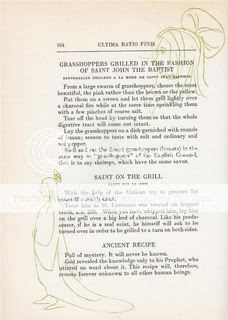 264 ULTIMA RATIO FINIS
GRASSHOPPERS GRILLED IN THE FASHION
OF SAINT JOHN THE BAPTIST
From a large swarm of grasshoppers, choose the most
beautiful, the pink rather than the brown or the yellow.
Put them on a screen and let them grill lightly over
a charcoal fire while at the same time sprinkling them
with a few pinches of coarse salt.
Tear off the head by turning them so that the whole
digestive tract will come out intact.
Lay the grasshoppers on a dish garnished with rounds
of lemon; season to taste with salt and ordinary and
red pepper.
in the
same way as "grasshoppers" of the English Channel,
that is to say shrimps, which have the same savor.
SAINT ON THE GRILL
With the help of the Vatican try to procure for
yourself a
Treat him as St. Lawrence was treated on August
tenth, A.D. 258. When you have whipped him, lay him
on the grill over a big bed of charcoal. Like his prede-
cessor, if he is a real saint, he himself will ask to be
turned over in order to be grilled to a turn on both sides.
ANCIENT RECIPE
Full of mystery. It will never be known.
God revealed the knowledge only to his Prophet, who
uttered no word about it. This recipe will, therefore,
remain forever unknown to all other human beings.